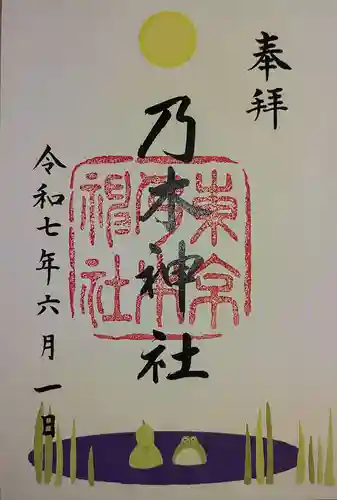 奉拝
乃木神社
東京乃木神社
令和七年六月一日